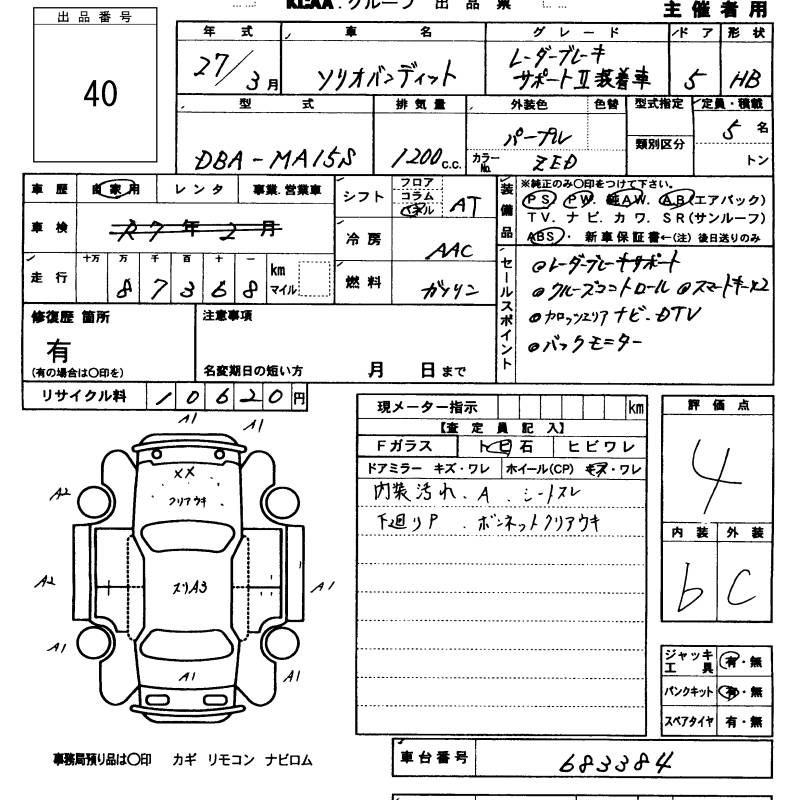 KCAA グループ 出品票
主催者用
出品番号
40
年式 車名 グレード ドア 形状
27/3月 ソリオバンディット レーダーブレーキサポートⅡ装着車 5 HB
型式 排気量 外装色 色替 型式指定 定員・積載
DBA-MA15S 1200c.c. パープル 類別区分 5名
カラーNo. ZED トン
車歴 自家用 レンタ 事業.営業車
シフト フロア コラム パネル AT
車検 R7年2月
冷房 AAC
走行 十万 万 千 百 十 一 km マイル
87368
燃料 ガソリン
装備品 ※純正のみ〇印をつけて下さい。
PS PW. 純AW. AB(エアバック)
TV. ナビ. カワ. SR(サンルーフ)
ABS・ 新車保証書←(注)後日送りのみ
セールスポイント
◎レーダーブレーキサポート
◎クルーズコントロール ◎スマートキーx2
◎カロッツェリアナビ・DTV
◎バックモニター
修復歴 箇所
有
(有の場合は〇印を)
注意事項
名変期日の短い方 月 日まで
リサイクル料 10620円
A1 A1
XX
クリアウキ
A2
A2 ズリA3 A1
A1 A1 A1
事務局預り品は〇印 カギ リモコン ナビロム
現メーター指示 km
【査定員記入】
Fガラス トビ石 ヒビワレ
ドアミラー キズ・ワレ ホイール(CP) キズ・ワレ
内装汚れ、A 、シートスレ
下廻りP 、ボンネットクリアウキ
評価点
4
内装 外装
b C
ジャッキ工具 有・無
パンクキット 有・無
スペアタイヤ 有・無
車台番号 683384